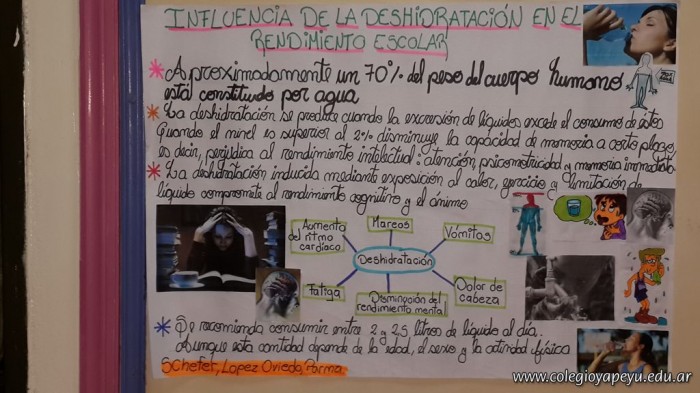 INFLUENCIA DE LA DESHIDRATACIÓN EN EL
RENDIMIENTO ESCOLAR
Aproximadamente un 70% del peso del cuerpo humano
está constituido por agua
La deshidratación se produce cuando la excresión de líquidos excede el consumo de éstos
Cuando el nivel es superior al 2% disminuye la capacidad de memoria a corto plazo,
es decir, perjudica al rendimiento intelectual: atención, psicomotricidad y memoria inmediata
La deshidratación inducida mediante exposición al calor, ejercicio y limitación de
líquido compromete al rendimiento cognitivo y el ánimo
Aumento
del ritmo
cardíaco
Mareos
Vómitos
Deshidratación
Fatiga
Disminución del
rendimiento mental
Dolor de
cabeza
Se recomienda consumir entre 2 y 2,5 litros de líquido al día.
Aunque esta cantidad depende de la edad, el sexo y la actividad física
Schefer, Lopez Oviedo, Parma
www.colegioyapeyu.edu.ar